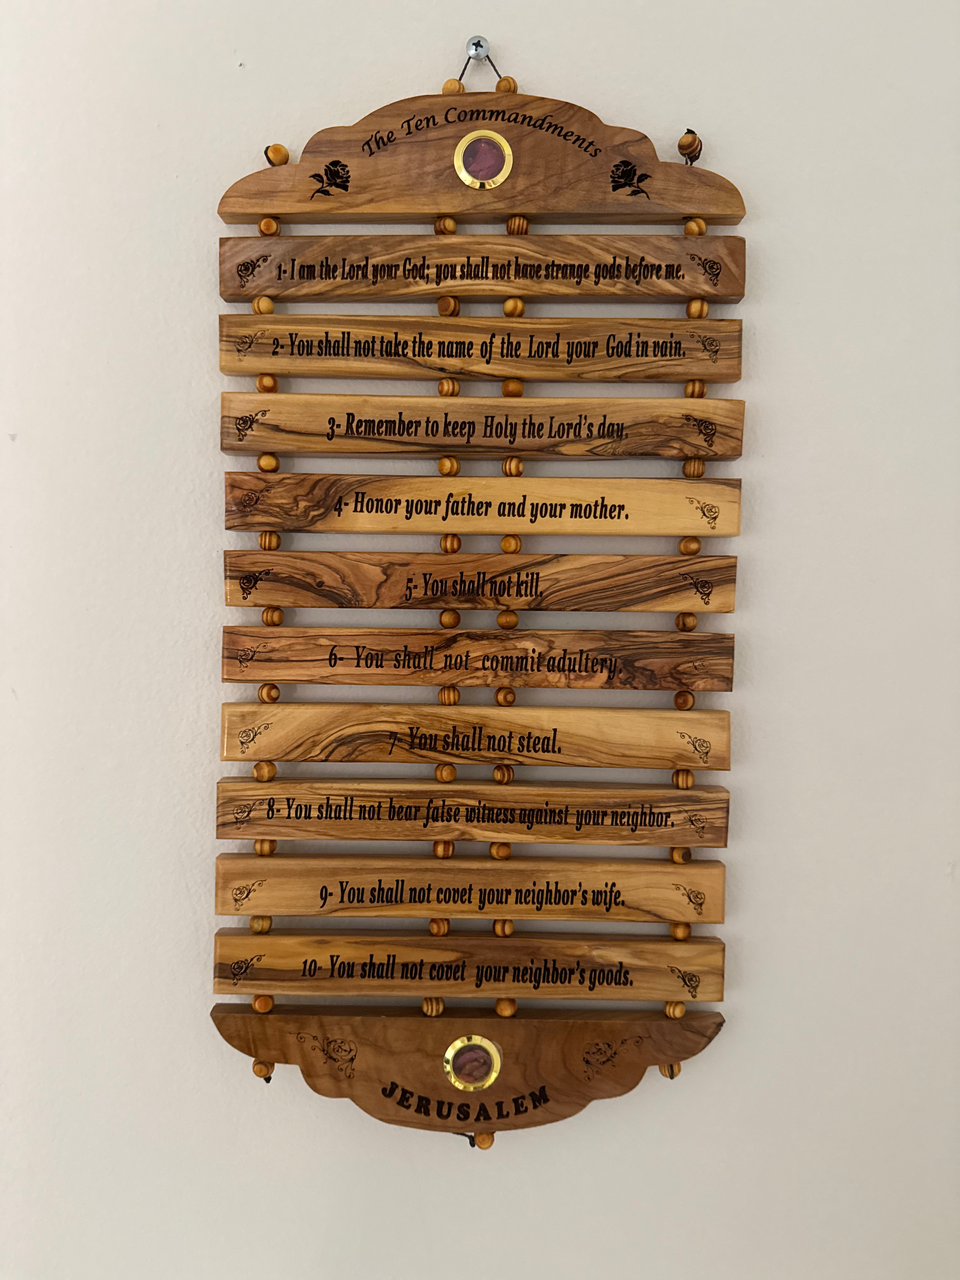 The Ten Commandments
1- I am the Lord your God; you shall not have strange gods before me.
2- You shall not take the name of the Lord your God in vain.
3- Remember to keep Holy the Lord's day.
4- Honor your father and your mother.
5- You shall not kill.
6- You shall not commit adultery.
7- You shall not steal.
8- You shall not bear false witness against your neighbor.
9- You shall not covet your neighbor's wife.
10- You shall not covet your neighbor's goods.
JERUSALEM